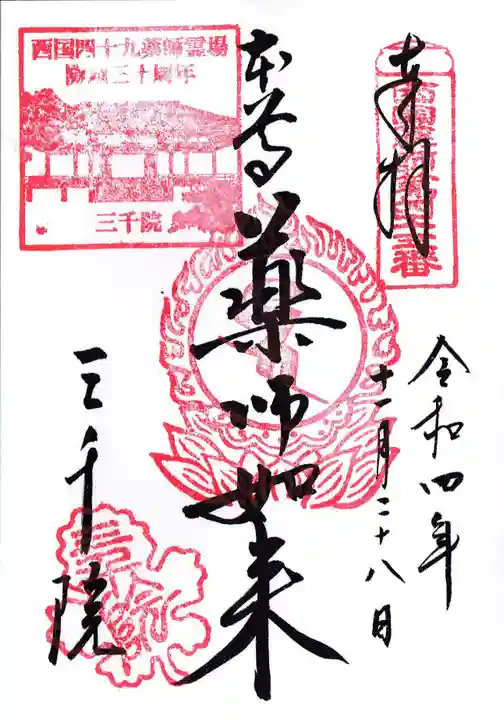 奉拝
令和四年
十一月二十八日
本尊
薬師如来
三千院
西国四十九薬師霊場
三十周年
三千院